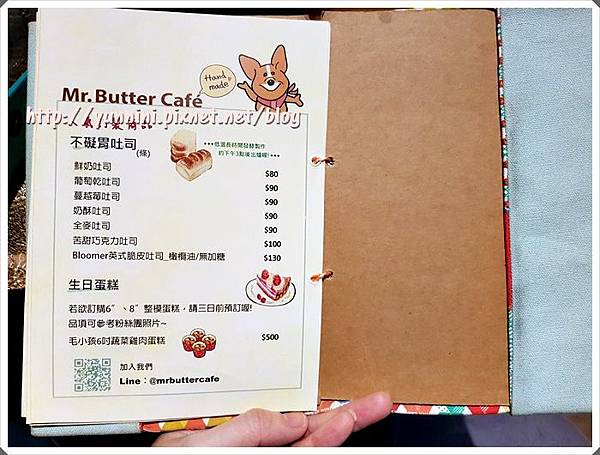 Hand made
Mr. Butter Café
http://yunnini.pixnet.net/blog
不礙胃吐司(條)
***低溫長時間發酵製作
約下午3點後出爐喔!***
鮮奶吐司 $80
葡萄乾吐司 $90
蔓越莓吐司 $90
奶酥吐司 $90
全麥吐司 $90
苦甜巧克力吐司 $100
Bloomer英式脆皮吐司_橄欖油/無加糖 $130
生日蛋糕
若欲訂購6”、8”整模蛋糕，請三日前預訂喔!
品項可參考粉絲團照片~
毛小孩6吋蔬菜雞肉蛋糕 $500
加入我們
Line：@mrbuttercafe